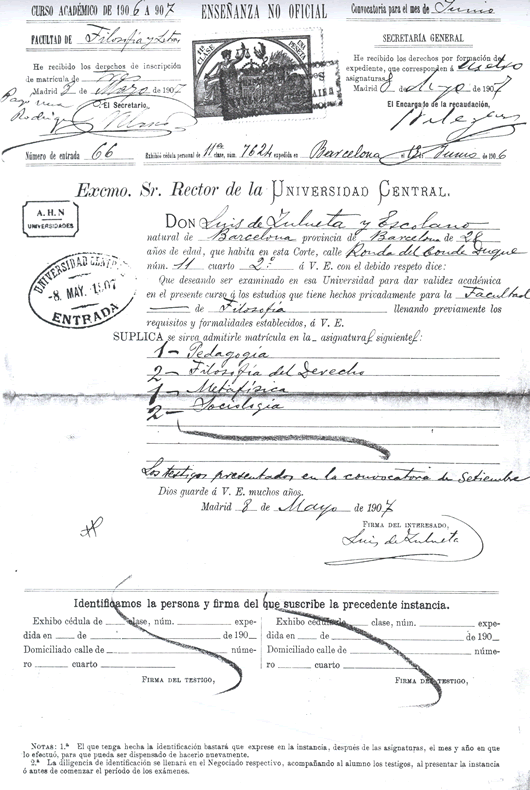 CURSO ACADÉMICO DE 1906 A 907
ENSEÑANZA NO OFICIAL
Convocatoria para el mes de Junio
FACULTAD DE Filosofía y Letras
He recibido los derechos de inscripción
de matrícula de
Madrid 8 de Mayo de 1907
El Secretario,
11ª CLASE
UNA PESETA
SECRETARÍA GENERAL
He recibido los derechos por formación de
expediente, que corresponden á
asignaturas.
Madrid 8 de Mayo de 1907
El Encargado de la recaudación,
Número de entrada 66
Exhibó cédula personal de 11ª clase, núm. 7624 expedida en Barcelona el 12 Junio de 1906
Excmo. Sr. Rector de la UNIVERSIDAD CENTRAL.
A. H. N
UNIVERSIDADES
UNIVERSIDAD CENTRAL
-8. MAY. 1907
ENTRADA
DON Luis de Zulueta y Escolano
natural de Barcelona provincia de Barcelona de 28
años de edad, que habita en esta Corte, calle Ronda del Conde Duque
núm. 11 cuarto 2.º á V. E. con el debido respeto dice:
Que deseando ser examinado en esa Universidad para dar validez académica
en el presente curso á los estudios que tiene hechos privadamente para la Facultad
de Filosofía llenando previamente los
requisitos y formalidades establecidos, á V. E.
SUPLICA se sirva admitirle matrícula en la asignaturas siguientes:
1 - Pedagogía
2 - Filosofía del Derecho
1 - Metafísica
2 - Sociología
Los testigos presentados en la convocatoria de Setiembre
Dios guarde á V. E. muchos años.
Madrid 8 de Mayo de 1907
FIRMA DEL INTERESADO,
Luis de Zulueta
Identificamos la persona y firma del que suscribe la precedente instancia.
Exhibo cédula de clase, núm. expe-
dida en de de 190
Domiciliado calle de núme-
ro cuarto
FIRMA DEL TESTIGO,
Exhibo cédula de clase, núm. expe-
dida en de de 190
Domiciliado calle de núme-
ro cuarto
FIRMA DEL TESTIGO,
NOTAS: 1.ª El que tenga hecha la identificación bastará que exprese en la instancia, después de las asignaturas, el mes y año en que
lo efectuó, para que pueda ser dispensado de hacerlo nuevamente.
2.ª La diligencia de identificación se llenará en el Negociado respectivo, acompañando al alumno los testigos, al presentar la instancia
ó antes de comenzar el período de los exámenes.